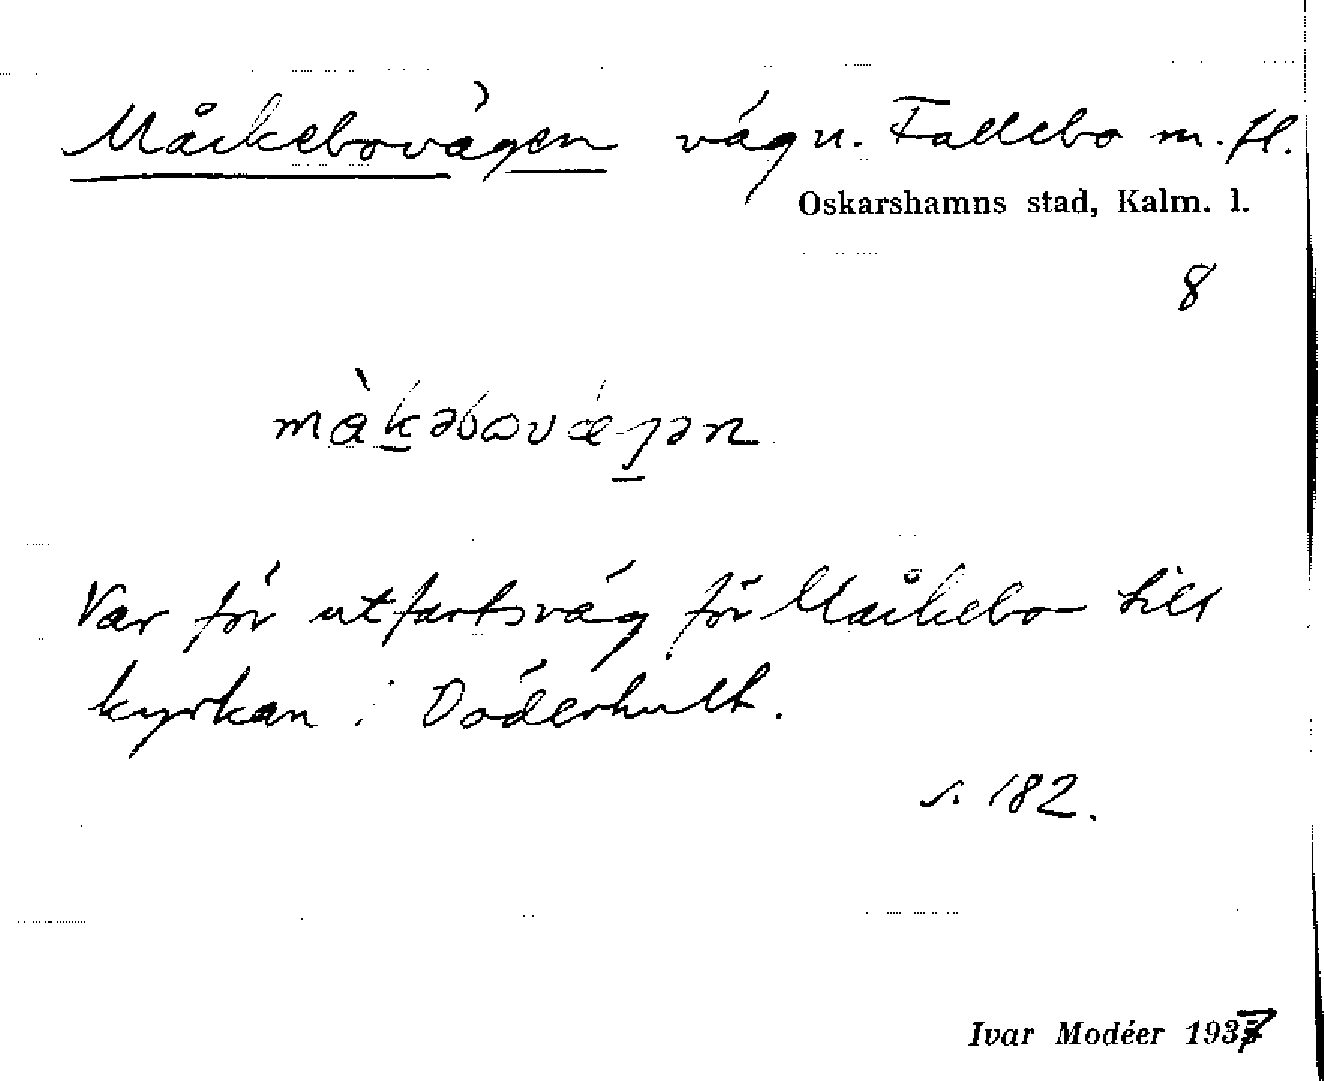 Måckebovägen vägn. Fallebo m. fl.
Oskarshamns stad, Kalm. l.
8
màkəbovǽgən
Var för utfartsväg för Måckebo till
kyrkan i Döderhult.
s. 182.
Ivar Modéer 1937